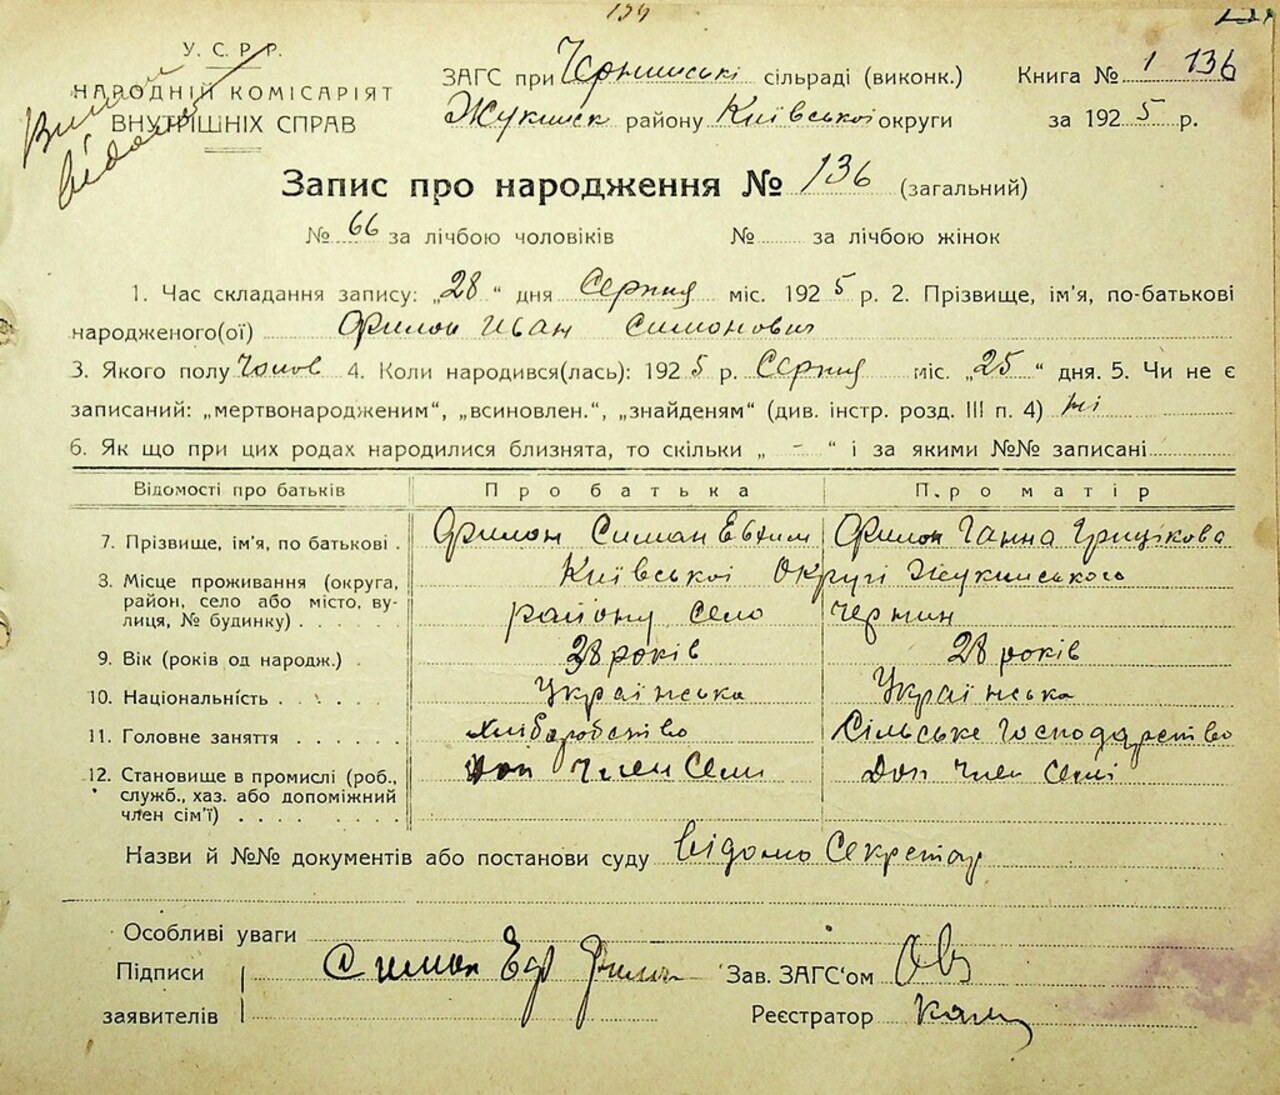 134
У. С. Р. Р.
НАРОДНІЙ КОМІСАРІЯТ
ВНУТРІШНІХ СПРАВ
ЗАГС при сільраді (виконк.)
Жукинск району Київської округи
Книга № 1 136
за 1925 р.
Запис про народження № 136 (загальний)
№ 66 за лічбою чоловіків № за лічбою жінок
1. Час складання запису: „28“ дня Серпня міс. 1925 р. 2. Прізвище, ім'я, по-батькові
народженого(ої) Филон Иван Симонович
3. Якого полу Чолов 4. Коли народився(лась): 1925 р. Серпня міс. „25“ дня. 5. Чи не є
записаний: „мертвонародженим“, „всиновлен.“, „знайденям“ (див. інстр. розд. III п. 4) ні
6. Як що при цих родах народилися близнята, то скільки „ - “ і за якими №№ записані
Відомості про батьків Про батька Про матір
7. Прізвище, ім'я, по батькові . Филон Симон Евхим Филон Ганна Грицікова
3. Місце проживання (округа,
район, село або місто, ву-
лиця, № будинку) . . . . . .
Київської Округі Жукинського
району село Чернин
9. Вік (років од народж.) . 38 років 28 років
10. Національність . . . . . . Українська Українська
11. Головне заняття . . . . . . хлиборобство Сільське Господарство
12. Становище в промислі (роб.,
служб., хаз. або допоміжний
член сім'ї) . . . . . . . . .
доп член Семи Доп член семі
Назви й №№ документів або постанови суду відомо Секретар
Особливі уваги
Підписи Симон Филон Зав. ЗАГС'ом
заявителів Реєстратор